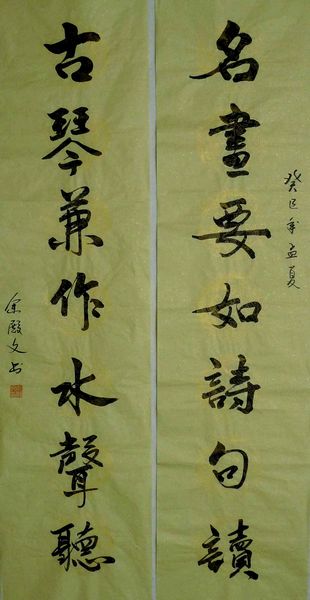 癸巳年孟夏
名畫要如詩句讀
古琴兼作水聲聽
余殿文书